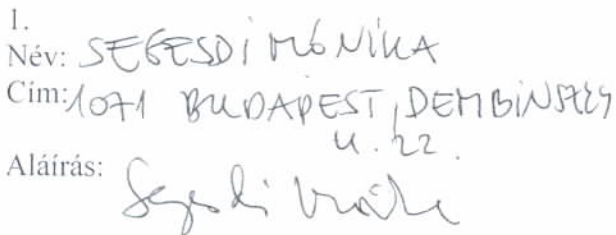 1.
Név: SEGESDI MÓNIKA
Cím: 1071 BUDAPEST, DEMBINSZKY
u. 22.
Aláírás: Segesdi Mónika